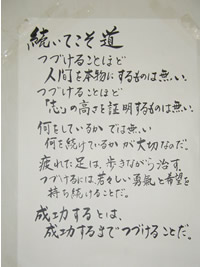 続いてこそ道
つづけることほど
人間を本物にするものは無い.
つづけることほど
「志」の高さを証明するものは無い.
何をしているか では無い
何を続けているか が大切なのだ.
疲れた足は、歩きながら治す.
つづけるには、若々しい勇氣と希望を
持ち続けることだ.
成功するとは、
成功するまでつづけることだ.